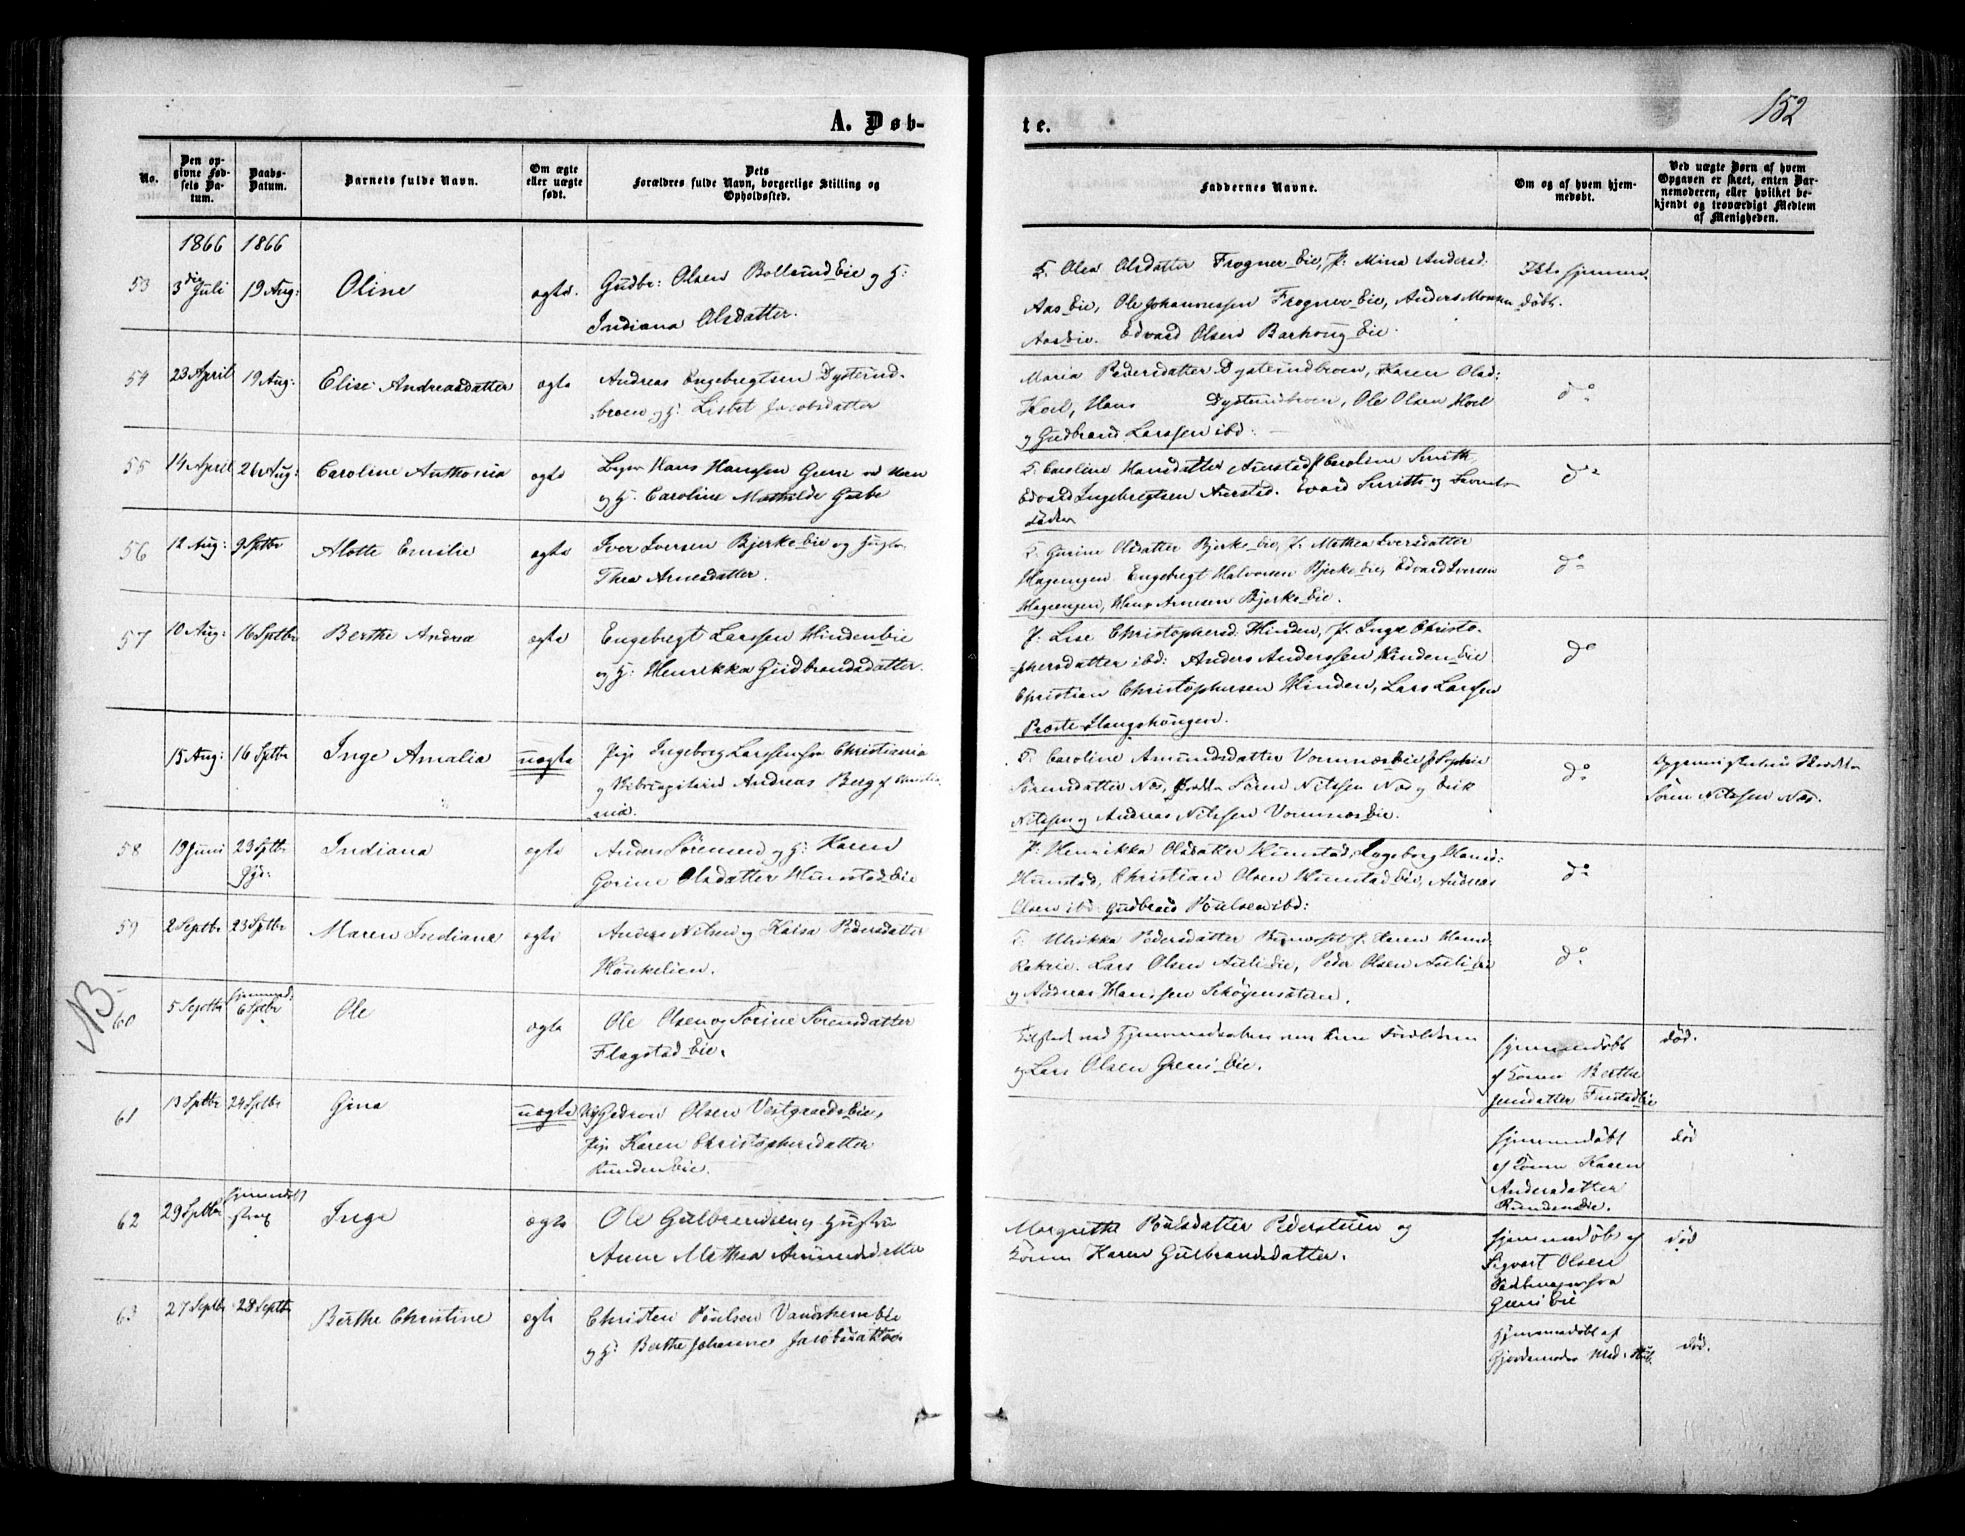 152
A. Døb-
te.
No.
Den op-
givne Fød-
sels Da-
tum.
Daabs-
Datum.
Barnets fulde Navn.
Om ægte
eller uægte
født.
Dets
Forældres fulde Navn, borgerlige Stilling og
Opholdssted.
Faddernes Navne.
Om og af hvem hjem-
medøbt.
Ved uægte Børn af hvem
Opgaven er skeet, enten Bar-
nemoderen, eller hvilket be-
kjendt og troværdigt Medlem
af Menigheden.
1866 1866
53 3die Juli 19 Aug: Oline ægte. Gudbr: Olsen Bollerud Eie og H:
Indiana Olsdatter.
Olea Olsdatter Frogner Eie, P: Mina Andersd.
Aas Eie, Ole Johannessen Frogner Eie, Anders Monsen
Aas Eie. Edvard Olsen Barhoug Eie.
Ikke hjemme-
døbt.
54 23 April 19 Aug: Elise Andreasdatter ægte Andreas Engebregtsen Dysterud-
broen og H: Lisbet Jacobsdatter
Maria Pedersdatter Dysterudbroen, Karen Olsd:
Hoel, Hans Dysterudbroen, Ole Olsen Hoel
og Gudbrand Larssen ibd:
do
55 14 April 26 Aug: Caroline Anthonia ægte Hans Hanssen
og H: Caroline Mathilde
Caroline Hansdatter Aurstad P Caroline Smith,
Edvard Ingebregtsen Aurstad. Smith og Barnets
Fader
do
56 12 Aug: 9 Septbr Alette Emilie ægte Iver Iversen Bjerke Eie og Hustru
Thea Arnesdatter.
Gurine Olsdatter Bjerke Eie, P. Mathea Iversdatter
Hagengen Engebregt Halvorsen Bjerke Eie, Edvard Iversen
Hagengen, Hans Arnesen Bjerke Eie.
do
57 10 Aug: 16 Septbr Berthe Andrea ægte Engebregt Larssen Hinden Eie
og H: Henrikka Gudbrandsdatter.
P: Lise Christophersd. Hinden, P. Inge Christo-
phersdatter ibd: Anders Anderssen Hinden Eie
Christian Christophersen Hinden, Lars Larssen
do
15 Aug: 16 Septbr Inge Amalia uægte Pige Ingeborg Larssen fra Christiania
og Andreas Berg
Caroline Amundsdatter Vormnæs Eie P Sophie
Sørensdatter Næs, Søren Nilssen Næs og Erik
Nilssen og Andreas Nilssen Vormnæs Eie.
do
Søren Nilssen Næs.
58 19 Juni 23 Septbr Indiana ægte Anders Sørensen og H: Karen
Gorine Olsdatter Hunstad Eie
P: Henrikka Olsdatter Hunstad, Ingeborg Hansd:
Hunstad, Christian Olsen Hunstad Eie, Andreas
Olsen ibd. Gudbrand Poulsen ibd:
do
59 2 Septbr 23 Septbr Maren Indiane ægte Anders Nilsen og Kaisa Pedersdatter
Hønkelien.
Ulrikka Pedersdatter P. Karen Hansd.
Lars Olsen Auli Eie, Peder Olsen Auli Eie
og Andreas Hanssen Skøyensølen.
do
NB
60 5 Septbr hjemmed: 6 Septbr Ole ægte Ole Olsen og Sørine Sørensdatter
Flagstad Eie.
Tilstede ved Hjemmedaaben vare Forældrene
og Lars Olsen Greni Eie.
hjemmedøbt
af Konen Berthe
Jensdatter Finstad Eie
død.
61 13 Septbr 24 Septbr Gina uægte Olsen Vestgaards Eie,
Pige Karen Christophersdatter
Runden Eie.
hjemmedøbt
af Konen Karen
Andersdatter
Runden Eie.
død
62 29 Septbr hjemmedøbt
strax Inge ægte Ole Gulbrandsen og Hustru
Anne Mathea Amundsdatter
Margrethe Poulsdatter Pedersteien og
Konen Karen Gulbrandsdatter.
hjemmedøbt af
Sigvart Olsen
Greni Eie
død
63 27 Septbr 28 Septbr Berthe Christine ægte Christen Poulsen Vandshem Eie
og H: Berthe Johanne Jacobsdatter
hjemmedøbt af
Gjordemoder Mad:
død.